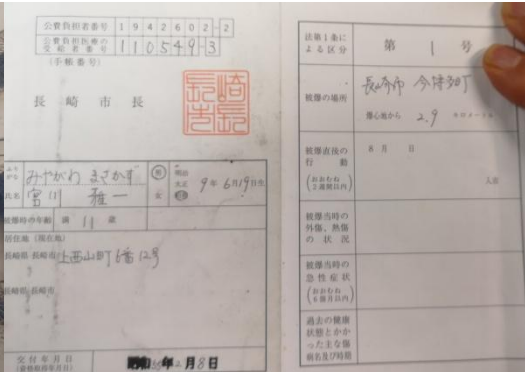 公費負担者番号 1942602-2
公費負担医療の受給者番号 110549-3
(手帳番号)
長崎市長
ふりがな みやがわ まさかず
氏名 宮川 雅一
男
女
明治
大正
9年6月19日生
被爆時の年齢 満 11 歳
居住地(現在地)
長崎県 長崎市 上西山町6番12号
長崎県 長崎市
交付年月日
月8日
法第1条による区分
第 1 号
被爆の場所
長崎市 今博多町
爆心地から 2.9 キロメートル
被爆直後の行動
(おおむね2週間以内)
8月 日
入市
被爆当時の外傷、熱傷の状況
被爆当時の急性症状
(おおむね6箇月以内)
過去の健康状態とかかった主な傷病名及び時期